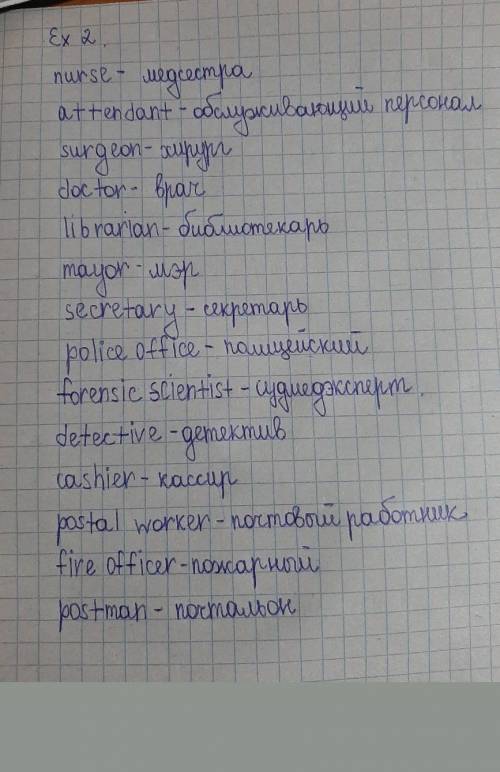 Ex 2.
nurse - медсестра
attendant - обслуживающий персонал
surgeon - хирург
doctor - врач
librarian - библиотекарь
mayor - мэр
secretary - секретарь
police office - полицейский
forensic scientist - судмедэксперт.
detective - детектив
cashier - кассир
postal worker - почтовый работник
fire officer - пожарный
postman - почтальон